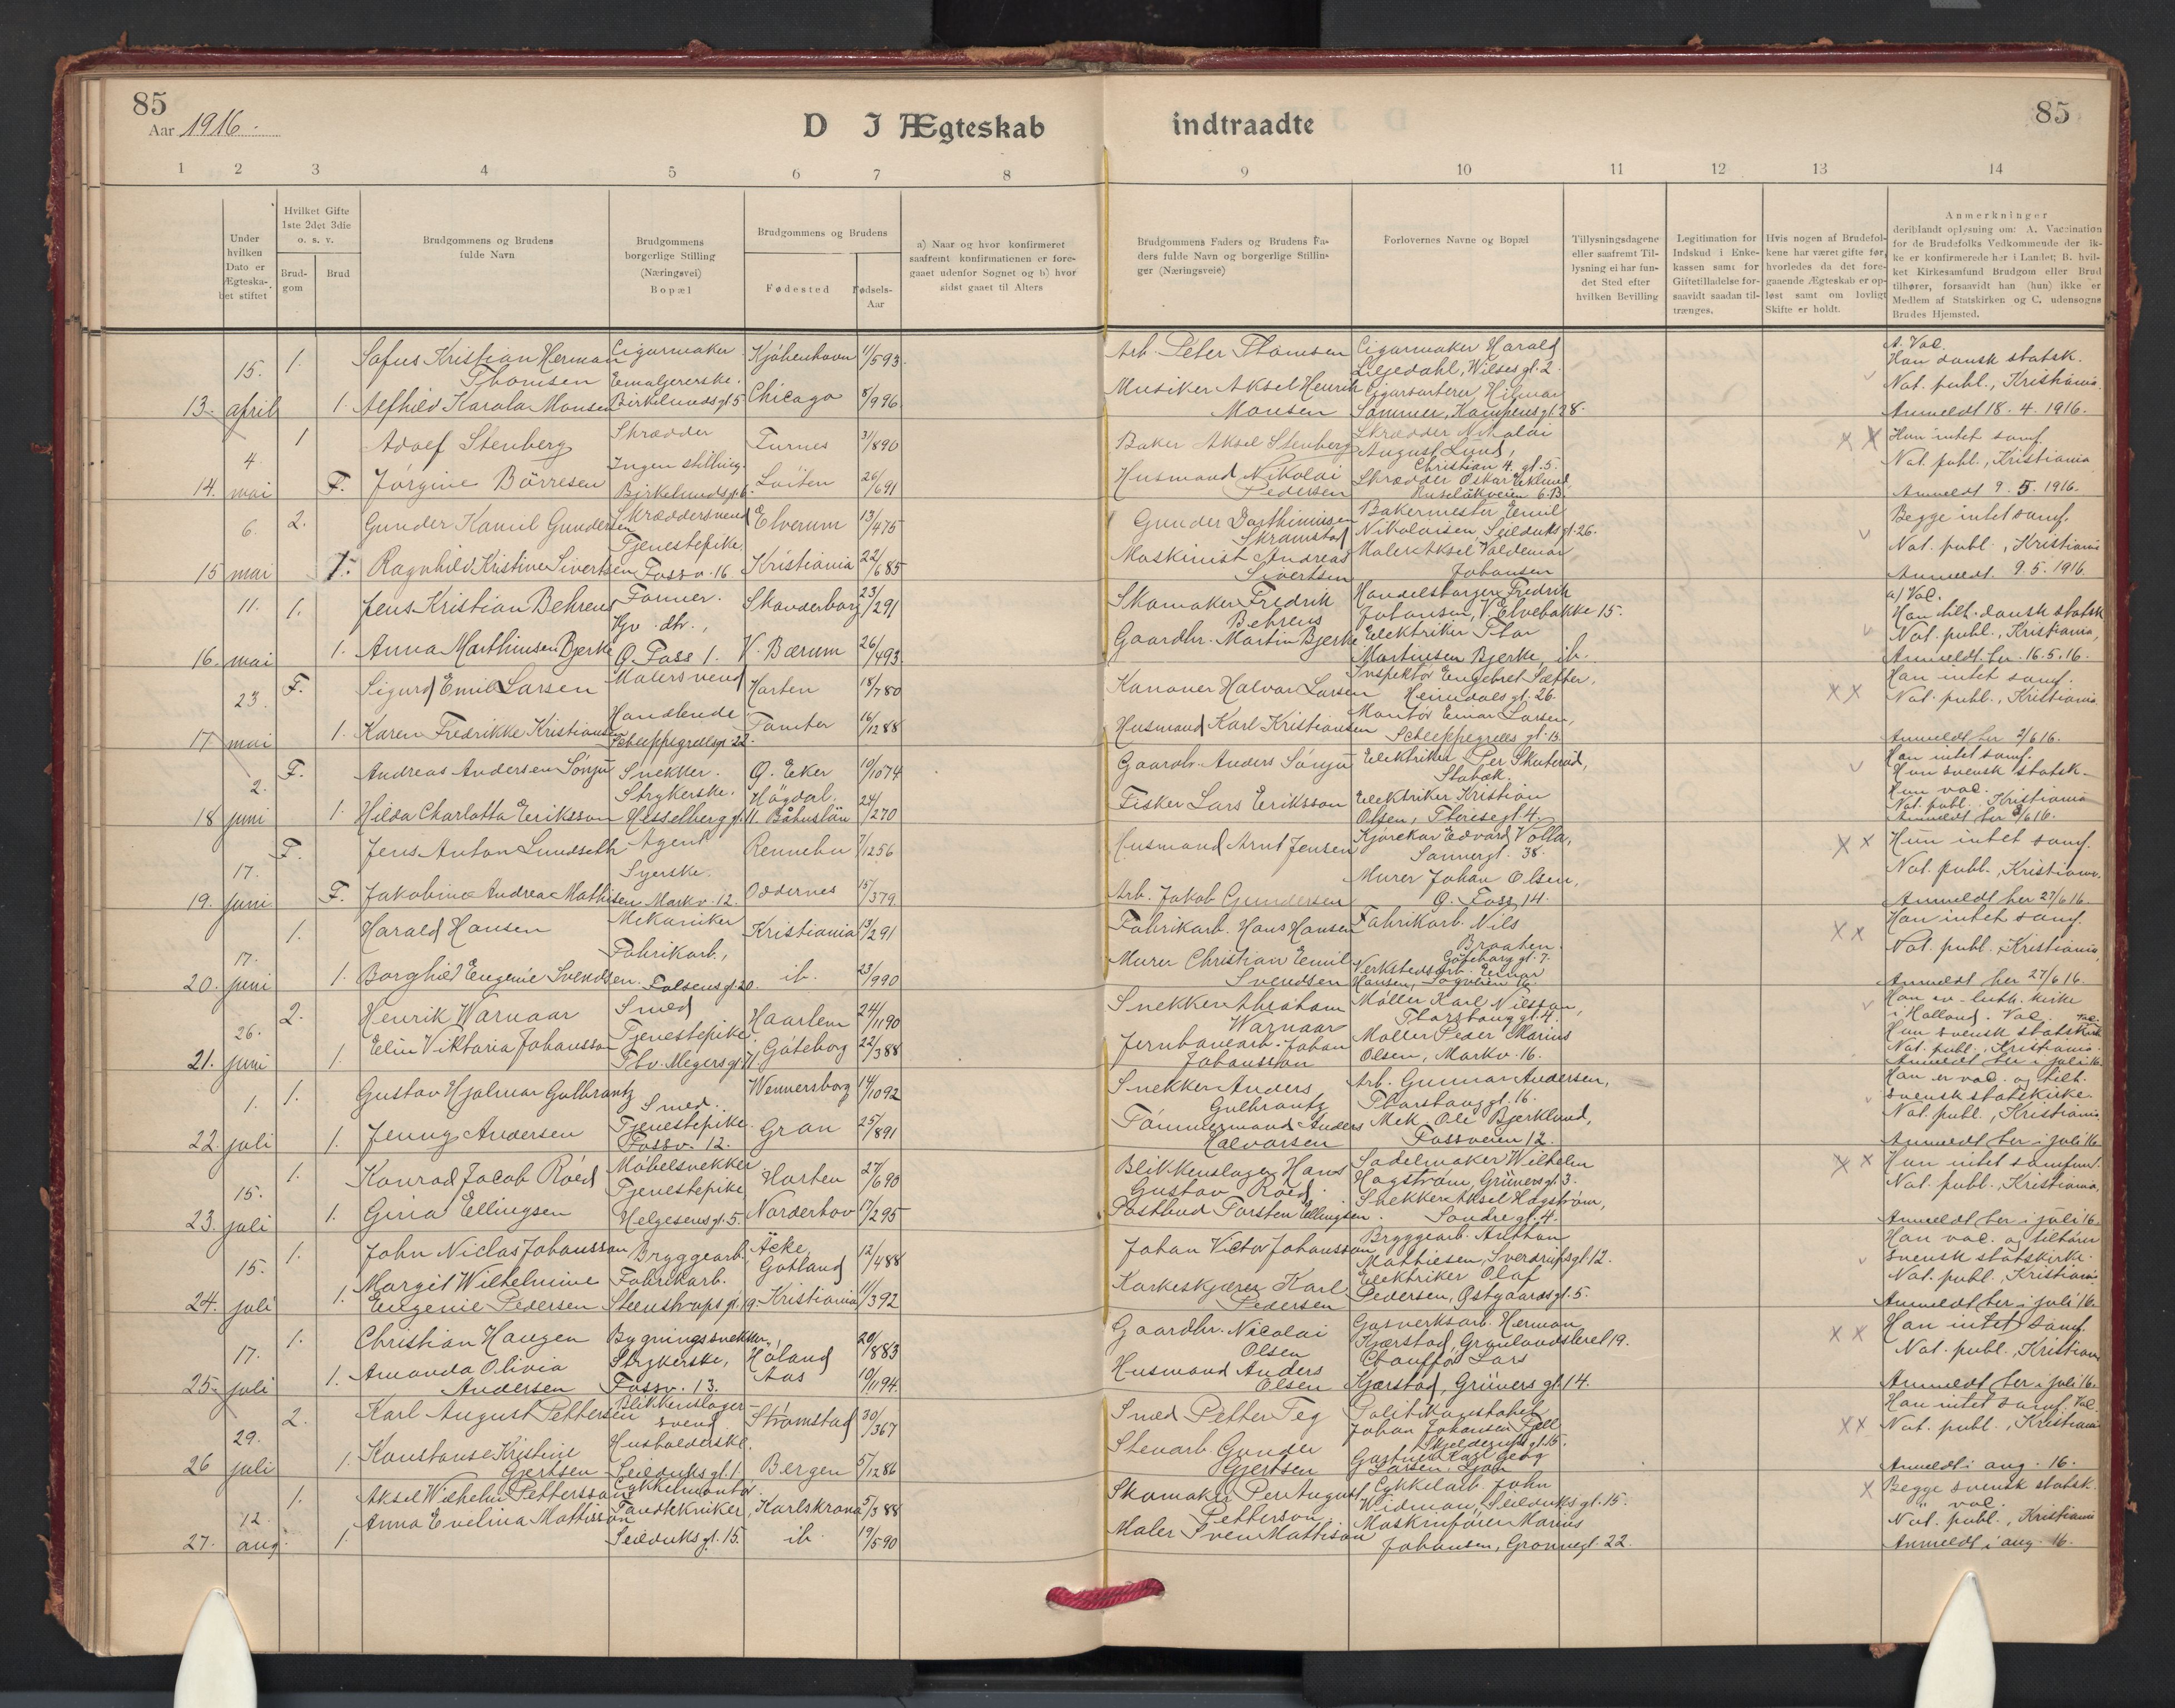 85
Aar 1916.
D I Ægteskab indtraadte
85
1 2 3 4 5 6 7 8 9 10 11 12 13 14
Under hvilken Dato er Ægteskabet stiftet
Hvilket Gifte 1ste 2det 3die o. s. v.
Brudgom
Brud
Brudgommens og Brudens fulde Navn
Brudgommens borgerlige Stilling (Næringsvei) Bopæl
Brudgommens og Brudens
Fødested
Fødsels-Aar
a) Naar og hvor konfirmeret saafremt konfirmationen er foregaaet udenfor Sognet og b) hvor sidst gaaet til Alters
Brudgommens Faders og Brudens Faders fulde Navn og borgerlige Stillinger (Næringsveie)
Forlovernes Navne og Bopæl
Tillysningsdagene eller saafremt Tillysning ei har fundet Sted efter hvilken Bevilling
Legitimation for Indskud i Enkekassen samt for Giftetilladelse forsaavidt saadan tiltrænges.
Hvis nogen af Brudefolkene har været gifte før, hvorledes da det foregaaende Ægteskab er opløst samt om lovligt Skifte er holdt.
Anmerkninger
deriblandt oplysning om: A. Vaccination for de Brudefolks Vedkommende der ikke er konfirmerede her i Landet; B. hvilket Kirkesamfund Brudgom eller Brud tilhører, forsaavidt han (hun) ikke er Medlem af Statskirken og C. udensogns Brudes Hjemsted.
15. 1. Sofus Kristian Herman Thomsen Cigarmaker Kjöbenhavn 11/593 Arb. Peter Thomsen Cigarmaker Harald Liljedahl, Wilses gt. 2. A. Vac. Han dansk statsk.
13. april 1. Alfhild Karola Monsen Emaljererske. Birkelunds gt 5 Chicago 8/996 Musiker Aksel Henrik Monsen Cigarsorterer Hilmar Sommer, Kampens gt 28. Not. publ., Kristiania. Anmeldt 18. 4. 1916.
4 1 Adolf Stenberg Skrædder Furnes 31/890 Baker Aksel Stenberg Skrædder Nikolai August Lund, Christian 4. gt. 5. Hun intet samf.
14. mai F. Jörgine Börresen Ingen stilling. Birkelunds gt. 6. Löiten 26/691 Husmand Nikolai Pedersen Skrædder Oskar Eklund, Ruselökveien 6 B. Not. publ., Kristiania Anmeldt 9. 5. 1916.
6. 2. Gunder Kamil Gundersen Skræddersvend Elverum 13/475 Gunder Skramstad Bakermester Emil Nikolaisen, Seilduks gt. 26. Begge intet samf.
15 mai 1. Ragnhild Kristine Sivertsen Tjenestepike. Fossv. 16. Kristiania 22/685 Maskinist Andreas Sivertsen Maler Aksel Valdemar Johansen Not. publ., Kristiania Anmeldt. 9. 5. 1916.
11. 1. Jens Kristian Behrens Former. Skanderborg 23/291 Skomaker Fredrik Behrens Handelsborger Fredrik Johansen, V. Elvebakke 15. a) Vac. Han tilh. dansk statsk
16. mai 1. Anna Marthinsen Bjerke Gv. dtr., Ö. Foss 1. V. Bærum 26/493. Gaardbr. Martin Bjerke Elektriker Thor Martinsen Bjerke, ib. Not. publ., Kristiania, Anmeldt her 16. 5. 16.
23. F. Sigurd Emil Larsen Malersvend Horten 18/780 Kanoner Halvor Larsen Inspektör Engebret Sæther, Heimdals gt. 26. Han intet samf.
17 mai 1. Karen Fredrikke Kristiansen Handlende. Schleppegrells gt. 22. Tomter 16/1288 Husmand Karl Kristiansen Montör Einar Larsen, Schleppegrells gt. 13. Not. publ., Kristiania Anmeldt her 2/6 16.
2. F. Andreas Andersen Sönju Snekker. Ö. Eker 10/1074 Gaardbr. Anders Sönju Elektriker Per Skuterud, Stabæk. Han intet samf.
18 juni 1. Hilda Charlotta Eriksson Strykerske. Hesselberg gt. 11. Högdal. Båhuslän 24/270 Fisker Lars Eriksson Elektriker Kristian Olsen, Therese gt. 4. Hun svensk statsk. Hun vac. Not. publ. Kristiania Anmeldt her 8/6 16.
17. F. Jens Anton Lundseth Agent Rennebu 7/1256 Husmand Arnt Jensen Kjörekar Edvard Volla, Sannergt. 38. Hun intet samf.
19. juni F. Jakobine Andrea Mathisen Syerske. Markv. 12. Oddernes 15/379. Arb. Jakob Gundersen Murer Johan Olsen, Ö. Foss 14. Not. publ., Kristiania. Anmeldt her 27/6 16.
17. 1. Harald Hansen Mekaniker Kristiania 13/291 Fabrikarb. Hans Hansen Fabrikarb. Nils Braaten Göteborg gt. 7. Han intet samf.
20. juni 1. Borghild Eugenie Svendsen Fabrikarb., Falsens gt. 20. ib. 23/990 Murer Christian Emil Svendsen Verkstedsarb. Einar Hansen, Sogveien 16. Not. publ. Kristiania, Anmeldt her 27/6 16.
26. 2. Henrik Warnaar Smed Haarlem 24/1190 Snekker Abraham Warnaar Möller Karl Nilsson, Thorshaug gt. 4. Han ev.-luth. kirke i Holland. Vac.
21. juni 1. Elin Viktoria Johansson Tjenestepike. Thv. Meyers gt. 71. Göteborg 22/388 Jernbanearb. Johan Johansson Möller Peder Marius Olsen, Markv. 16. Hun svensk statskirke Vac. Not. publ. Kristiania. Anmeldt her i juli 16.
1. 1. Gustav Hjalmar Gulbrantz Smed. Wennersborg 14/1092 Snekker Anders Gulbrantz Arb. Gunnar Andersen, Thorshaug gt. 16. Han er vac. og tilh. svensk statskirke.
22. juli 1. Jenny Andersen Tjenestepike Fossv. 12. Gran 25/891 Tömmermand Anders Halvorsen Mek. Ole Bjerklund, Fossveien 12. Not. publ., Kristiania Anmeldt her i juli 16
15. 1. Konrad Jacob Röed Möbelsnekker Horten 27/690 Blikkenslager Hans Gustav Röed. Sadelmaker Wilhelm Hagström, Grüners gt. 3. Hun intet samfund.
23. juli 1. Gina Ellingsen Tjenestepike, Helgesens gt. 5. Norderhov 17/295 Postbud Torsten Ellingsen. Snekker Aksel Hagström, Söndre gt. 4. Not. publ., Kristiania, Anmeldt her i juli 16.
15. 1. John Niclas Johansson Bryggearb. Äcke, Gotland 12/488 Johan Victor Johansson Bryggearb. Anthon Mathiesen, Sverdrups gt 12. Han vac. og tilhörer svensk statskirk.
24. juli 1. Margit Wilhelmine Eugenie Pedersen Fabrikarb. Steenstrups gt. 19. Kristiania 11/392 Karkeskjærer Karl Pedersen Elektriker Olaf Pedersen, Östgaards gt. 5. Not. publ., Kristiania Anmeldt her i juli 16.
17. 1. Christian Haugen Bygningssnekker, Höland 20/883 Gaardbr. Nicolai Olsen Gasverksarb. Herman Kjærstad, Grönlandsleret 19. Han intet samf.
25. juli 1. Amanda Olivia Andersen Strykerske, Fossv. 13. Aas 10/1194. Husmand Anders Olsen Chaufför Lars Kjærstad, Grüners gt. 14. Not. publ., Kristiania Anmeldt her i juli 16.
29. 2. Karl August Pettersen Blikkenslagersvend Strömstad 30/367 Smed Petter Teg Politikonstabel Johan Johansen Skjelderups gt. 15. Han intet samf. Vac.
26 juli 1. Konstanse Kristine Gjertsen Husholderske. Seilduks gt. 1. Bergen 5/1286 Stenarb. Gunder Gjertsen Gartner Karl Georg Larsen, Ljan Not. publ., Kristiania Anmeldt i aug. 16.
12. 1. Aksel Wilhelm Pettersson Cykkelmontör. Karlskrona 5/388 Skomaker Per August Petterson. Cykkelarb. John Widman, Seilduks gt. 15. Begge svensk statsk. vac.
27. aug. 1. Anna Evelina Mattisson Tandtekniker, Seilduks gt. 15. ib. 19/590 Maler Sven Mattison Maskinförer Marius Johansen, Grönnegt. 22. Not. publ., Kristiania Anmeldt i aug. 16.